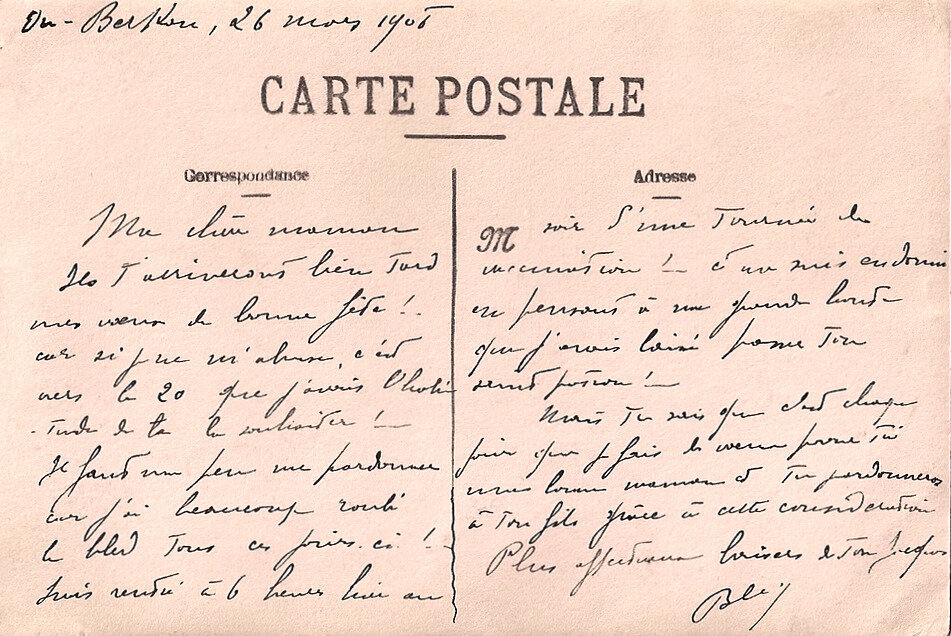 26 mars 1905
CARTE POSTALE
Correspondance
Ma chère maman
Ils t'arriveront bien tard
mes vœux de bonne fête !
car si je ne m'abuse, c'est
vers le 20 que j'avais l'habi
-tude de te la souhaiter !
Il faut un peu me pardonner
car j'ai beaucoup roulé
le bled tous ces jours-ci !
Suis rentré à 6 heures hier au
Adresse
M
soir d'une tournée de
vaccination ! et me suis endormi
en pensant à ma grande honte
que j'avais laissé passer ton
saint patron !
Mais tu sais que c'est chaque
jour que je fais des vœux pour toi
ma bonne maman et tu pardonneras
à ton fils grâce à cette considération
Plus affectueux baisers de ton Jacques